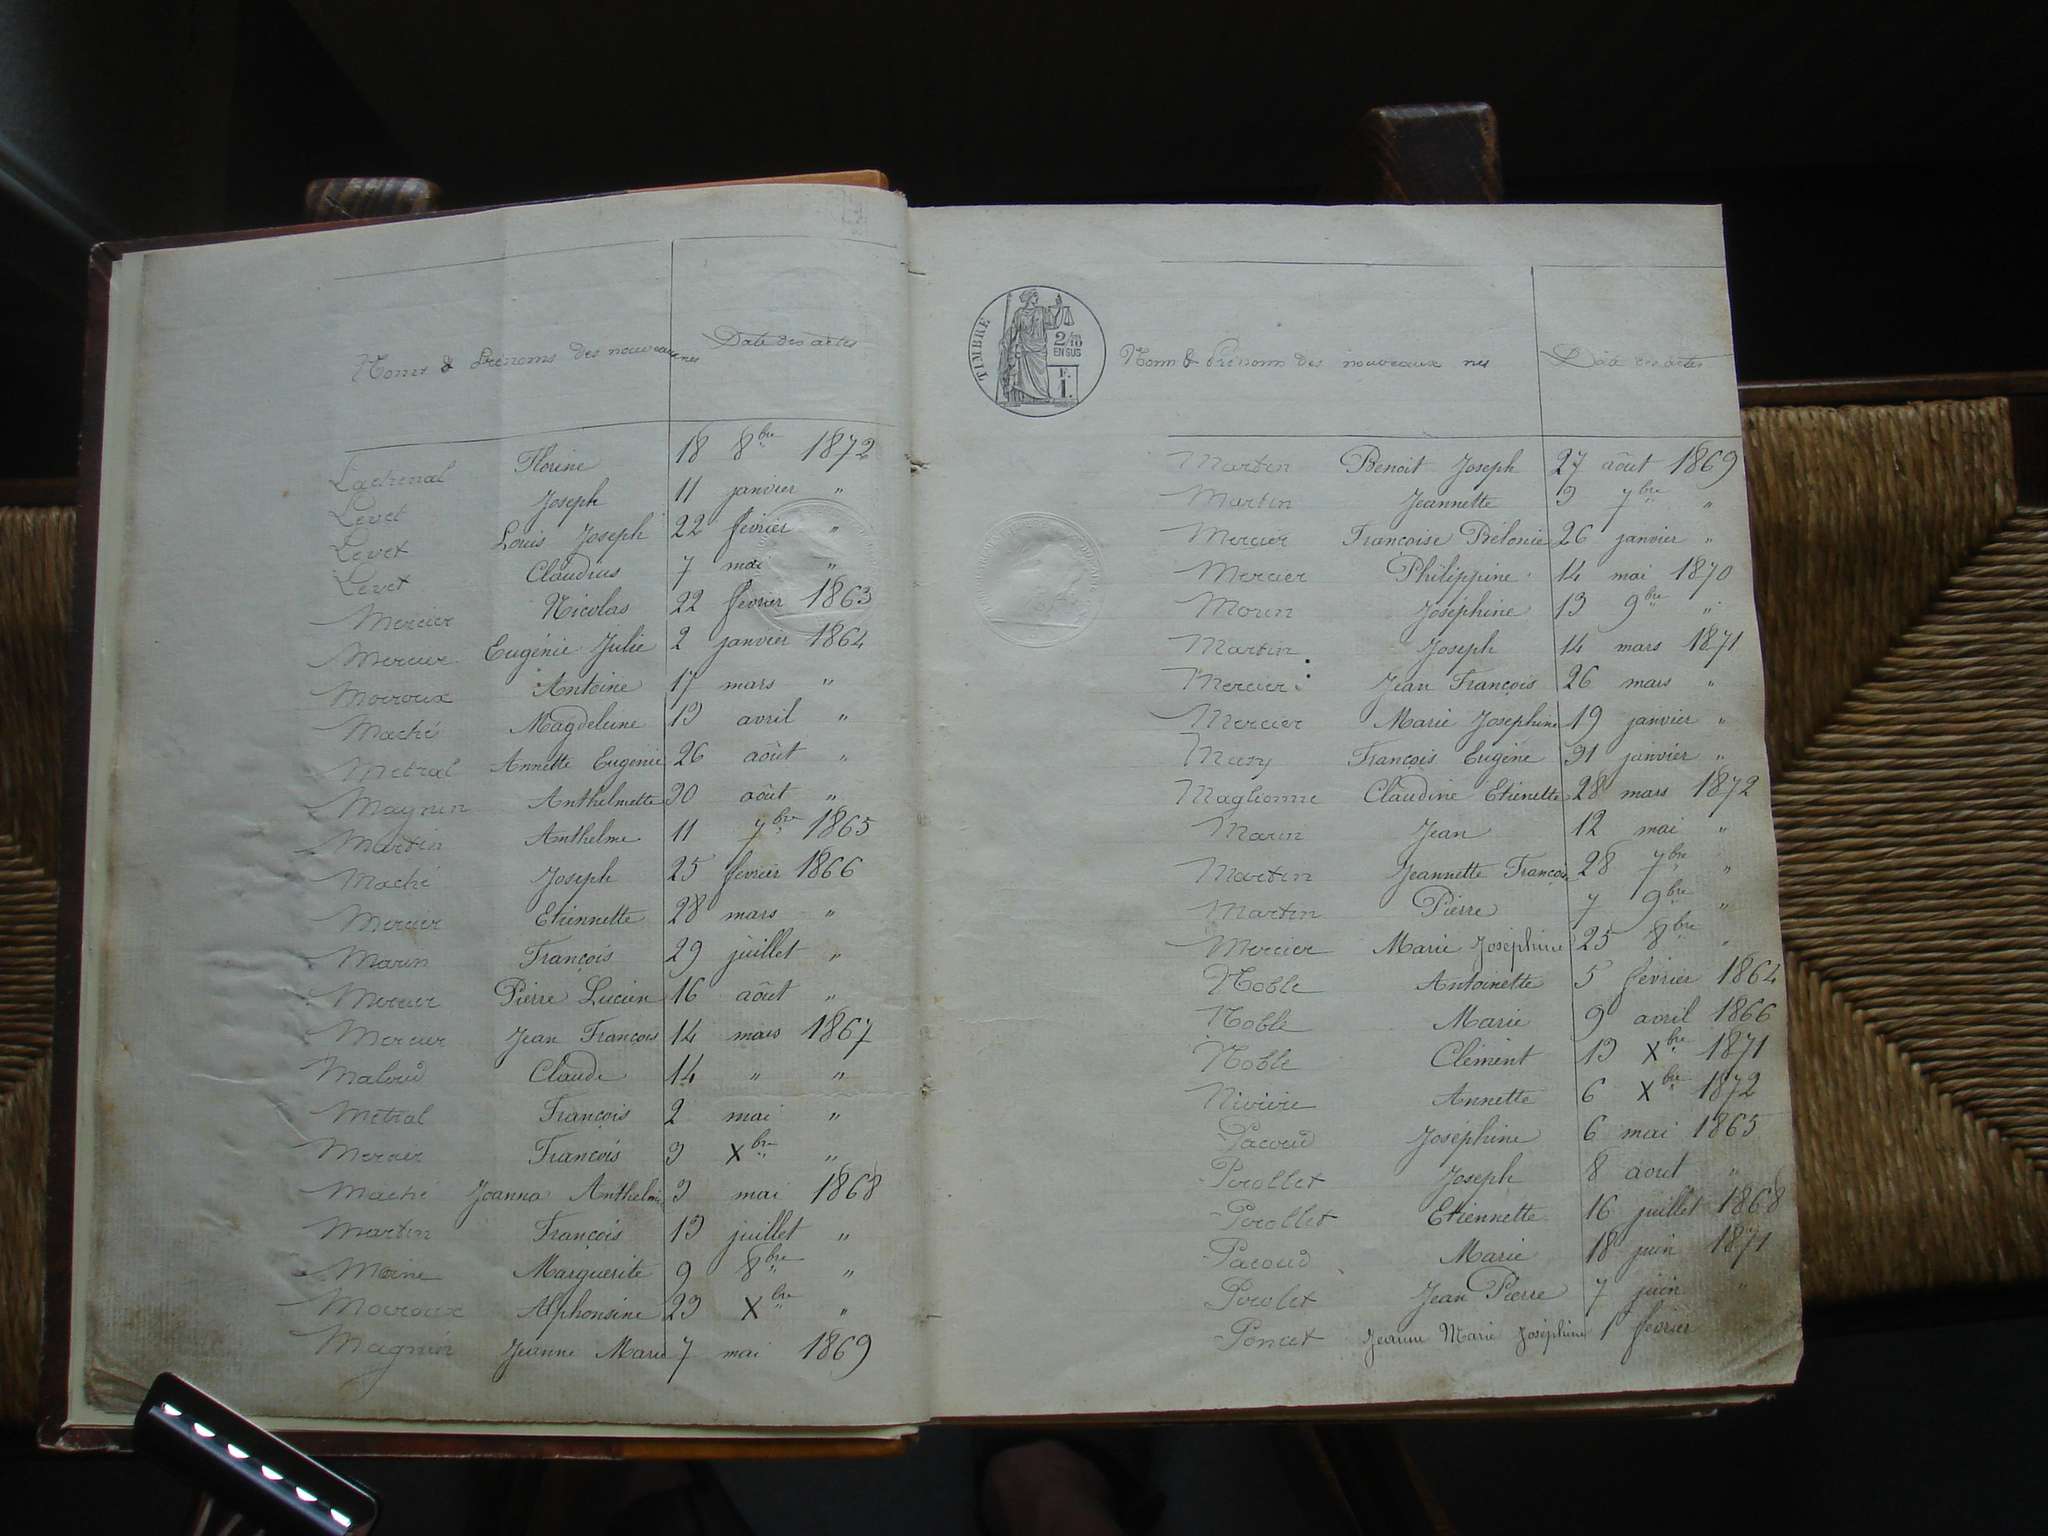 Noms & Prénoms des nouveaux nés Date des actes
Lachenal Florine 18 8bre 1872
Levet Joseph 11 janvier "
Levet Louis Joseph 22 février "
Levet Claudius 7 mai "
Mercier Nicolas 22 février 1863
Mercier Eugénie Julie 2 janvier 1864
Moiroux Antoine 17 mars "
Maché Magdeleine 13 avril "
Métral Annette Eugénie 26 août "
Magnin Anthelmette 30 août "
Martin Anthelme 11 7bre 1865
Maché Joseph 25 février 1866
Mercier Etiennette 28 mars "
Marin François 29 juillet "
Mercier Pierre Lucien 16 août "
Mercier Jean François 14 mars 1867
Maloud Claude 14 " "
Métral François 2 mai "
Mercier François 3 Xbre "
Maché Joanna Anthelmie 3 mai 1868
Martin François 13 juillet "
Moine Marguerite 9 8bre "
Moiroux Alphonsine 23 Xbre "
Magnin Jeanne Marie 7 mai 1869
TIMBRE
2/10
EN SUS
F.
1.
Noms & Prénoms des nouveaux nés Date des actes
Martin Benoit Joseph 27 août 1869
Martin Jeannette 9 7bre "
Mercier Françoise Pélonie 26 janvier "
Mercier Philippine 14 mai 1870
Morin Joséphine 13 9bre "
Martin Joseph 14 mars 1871
Mercier Jean François 26 mars "
Mercier Marie Joséphine 19 janvier "
François Eugène 31 janvier "
Maglionne Claudine Etienette 28 mars 1872
Marin Jean 12 mai "
Martin Jeannette 28 7bre "
Martin Pierre 7 9bre "
Mercier Marie Joséphine 25 8bre "
Noble Antoinette 5 février 1864
Noble Marie 9 avril 1866
Noble Clément 13 Xbre 1871
Nivière Annette 6 Xbre 1872
Pacoud Joséphine 6 mai 1865
Pirollet Joseph 8 aout "
Pirollet Etiennette 16 juillet 1868
Pacoud Marie 18 juin 1871
Pirolet Jean Pierre 7 juin "
Poncet Jeanne Marie Joséphine 1 février "